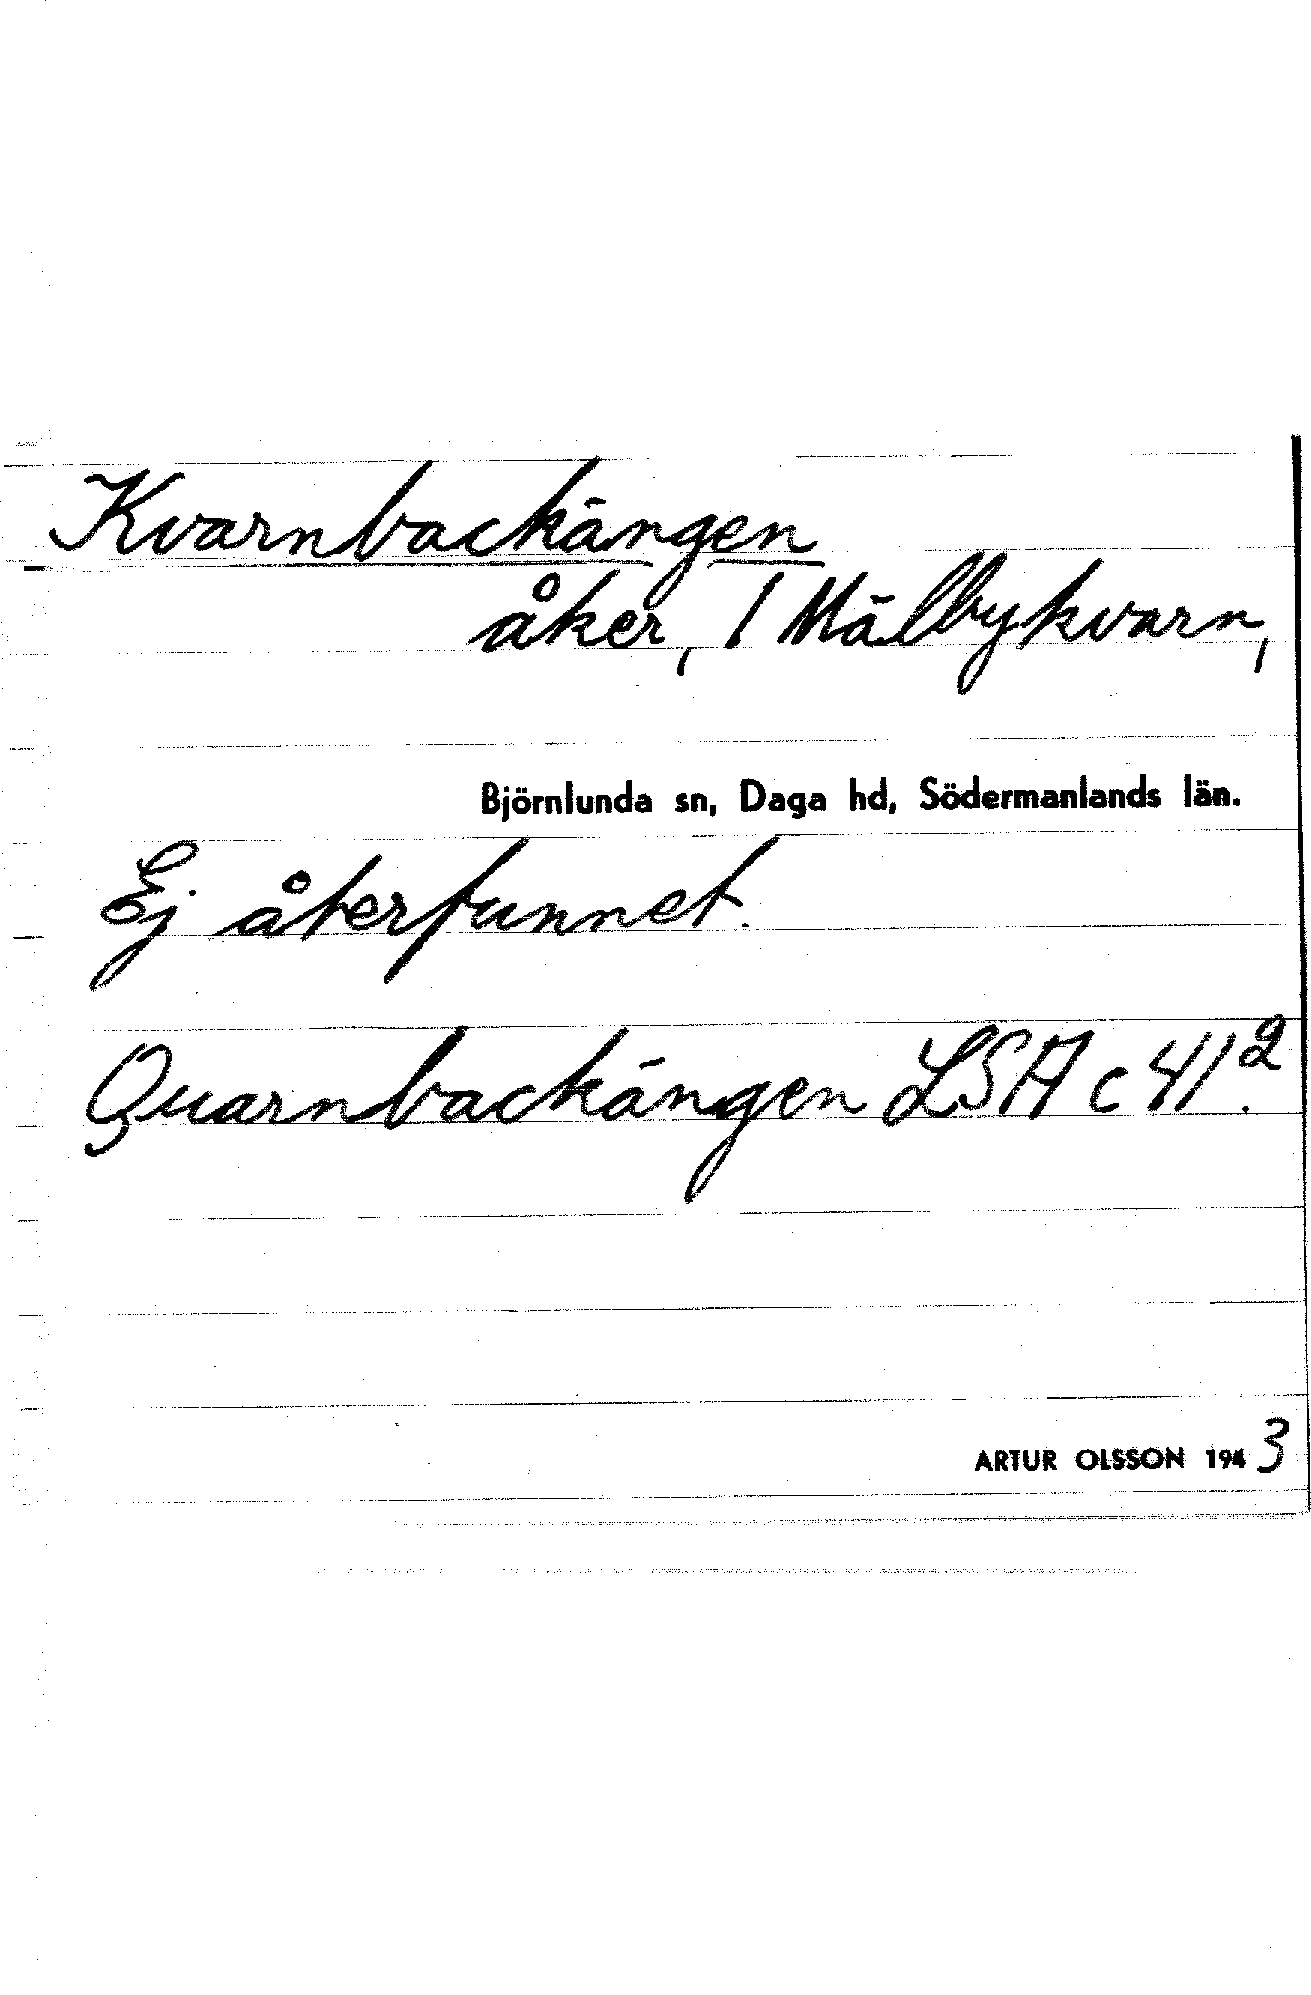 Kvarnbackängen
åker, / Mälbykvarn,
Björnlunda sn, Daga hd, Södermanlands län.
Ej återfunnet.
Quarnbackängen LSA c 41².
ARTUR OLSSON 1943